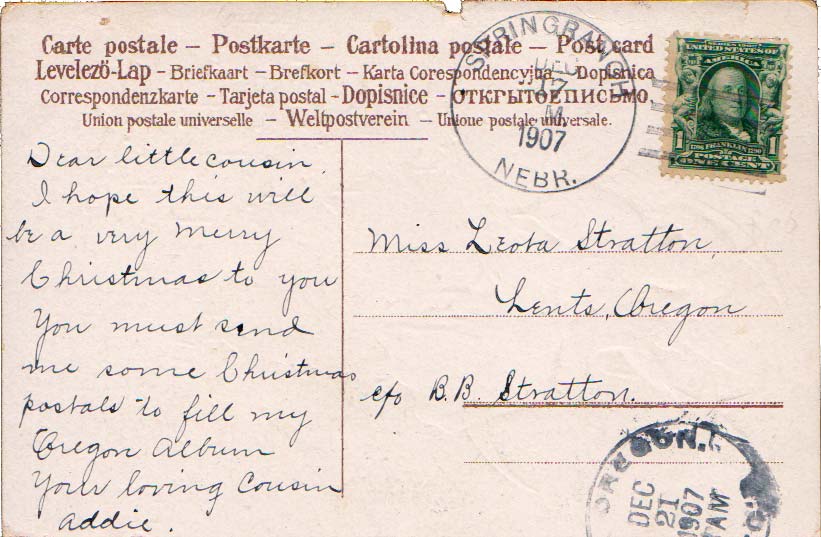 Carte postale – Postkarte – Cartolina postale – Post card
Levelező-Lap - Briefkaart - Brefkort - Karta Corespondencyjna - Dopisnica
Correspondenzkarte - Tarjeta postal - Dopisnice - ОТКРЫТОЕПИСЬМО
Union postale universelle – Weltpostverein – Unione postale universale.
SPRINGRANCH
DEC
17
M
1907
NEBR.
UNITED STATES OF
AMERICA
1 FRANKLIN 1
POSTAGE
ONE CENT
Dear little cousin,
I hope this will
be a very Merry
Christmas to you
You must send
me some Christmas
postals to fill my
Oregon Album
Your loving Cousin
Addie.
Miss Leota Stratton,
Lents, Oregon
c/o B.B. Stratton.
OREGON.
DEC
21
1907
7AM